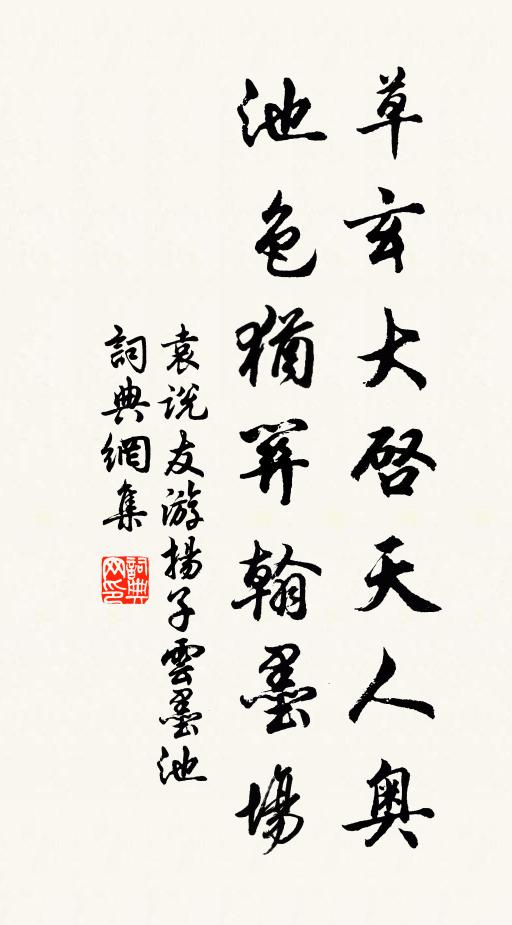 草玄大啓天人奧
池色猶開翰墨場
袁说友游揚子雲墨池
詞典網集
詞典网印